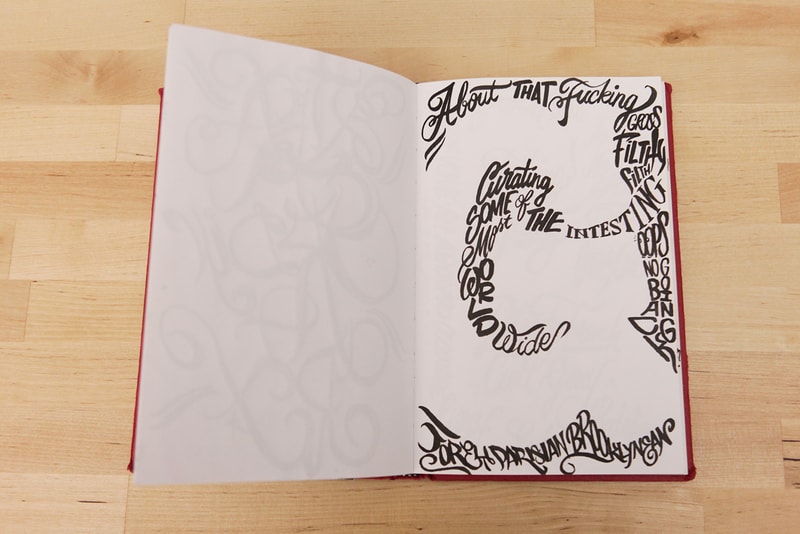 About THAT Fucking
GROSS
FILTHY
FILTH
Curating
SOME of
Most THE INTESTING
OOPS
NO GOING
BACK
WORLD
Wide
PARISIAN BROOKLYNEAN